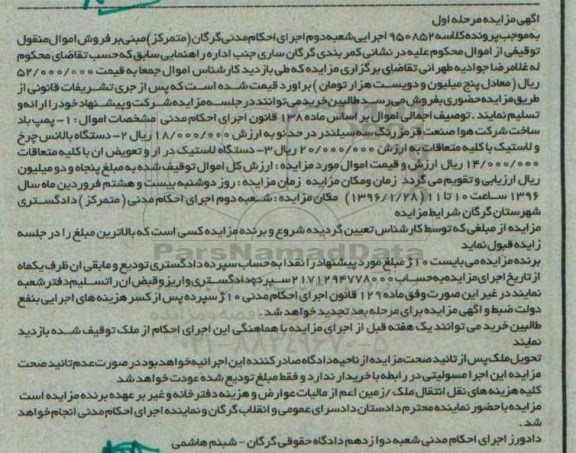 آگهی مزایده مرحله اول
به موجب پرونده کلاسه ۹۵۰۸۵۲ اجرایی شعبه دوم اجرای احکام مدنی گرگان (متمرکز) مبنی بر فروش اموال منقول
توقیفی از اموال محکوم علیه در نشانی کمربندی گرگان ساری جنب اداره راهنمایی سابق که حسب تقاضای محکوم
له غلامرضا جوادیه طهرانی تقاضای برگزاری مزایده که طی بازدید کارشناس اموال جمعا به قیمت ۵۲/۰۰۰/۰۰۰
ریال (معادل پنج میلیون و دویست هزار تومان) براورد قیمت شده است که پس از جری تشریفات قانونی از
طریق مزایده حضوری بفروش می رسد طالبین خرید می توانند در جلسه مزایده شرکت و پیشنهاد خود را ارائه و
تسلیم نمایند. توصیف اجمالی اموال بر اساس ماده ۱۳۸ قانون اجرای احکام مدنی مشخصات اموال: ۱- پمپ باد
ساخت شرکت هوا صنعت قرمز رنگ سه سیلندر در حد نو به ارزش ۱۸/۰۰۰/۰۰۰ ریال ۲- دستگاه بالانس چرخ
و لاستیک با کلیه متعلقات به ارزش ۲۰/۰۰۰/۰۰۰ ریال ۳- دستگاه لاستیک در ار و تعویض ان با کلیه متعلقات
۱۴/۰۰۰/۰۰۰ ریال ارزش و قیمت اموال مورد مزایده: ارزش کل اموال توقیف شده به مبلغ پنجاه و دو میلیون
ریال ارزیابی و تقویم می گردد زمان ومکان مزایده زمان مزایده: روز دوشنبه بیست و هشتم فروردین ماه سال
۱۳۹۶ ساعت ۱۰ تا ۱۱ (۱۳۹۶/۱/۲۸) مکان مزایده: شعبه دوم اجرای احکام مدنی (متمرکز) دادگستری
شهرستان گرگان شرایط مزایده
مزایده از مبلغی که توسط کارشناس تعیین گردیده شروع و برنده مزایده کسی است که بالاترین مبلغ را در جلسه
زایده قبول نماید
برنده مزایده می بایست ۱۰٪ مبلغ مورد پیشنهاد را نقدا به حساب سپرده دادگستری تودیع و مابقی ان ظرف یکماه
از تاریخ اجرای مزایده به حساب ۲۱۷۱۲۹۴۷۷۸۰۰۰ سپرده دادگستری واریز و قبض ان را تسلیم دفتر شعبه
نمایند در غیر این صورت وفق ماده ۱۲۹ قانون اجرای احکام مدنی ۱۰٪ سپرده پس از کسر هزینه های اجرایی بنفع
دولت ضبط و اگهی مزایده برای مرحله بعد تجدید خواهد شد
طالبین خرید می توانند یک هفته قبل از اجرای مزایده با هماهنگی این اجرای احکام از ملک توقیف شده بازدید
نمایند
تحویل ملک پس از تائید صحت مزایده از ناحیه دادگاه صادر کننده این اجرائیه خواهد بود در صورت عدم تائید صحت
مزایده این اجرا مسولیتی در رابطه با خریدار ندارد و فقط مبلغ تودیع شده عودت خواهد شد
کلیه هزینه های نقل انتقال ملک / زمین اعم از مالیات عوارض و هزینه دفترخانه و غیر بر عهده برنده مزایده است
مزایده با حضور نماینده محترم دادستان دادسرای عمومی و انقلاب گرگان و نماینده اجرای احکام مدنی انجام خواهد
شد.
دادورز اجرای احکام مدنی شعبه دوازدهم دادگاه حقوقی گرگان - شبنم هاشمی
ParsNamadData